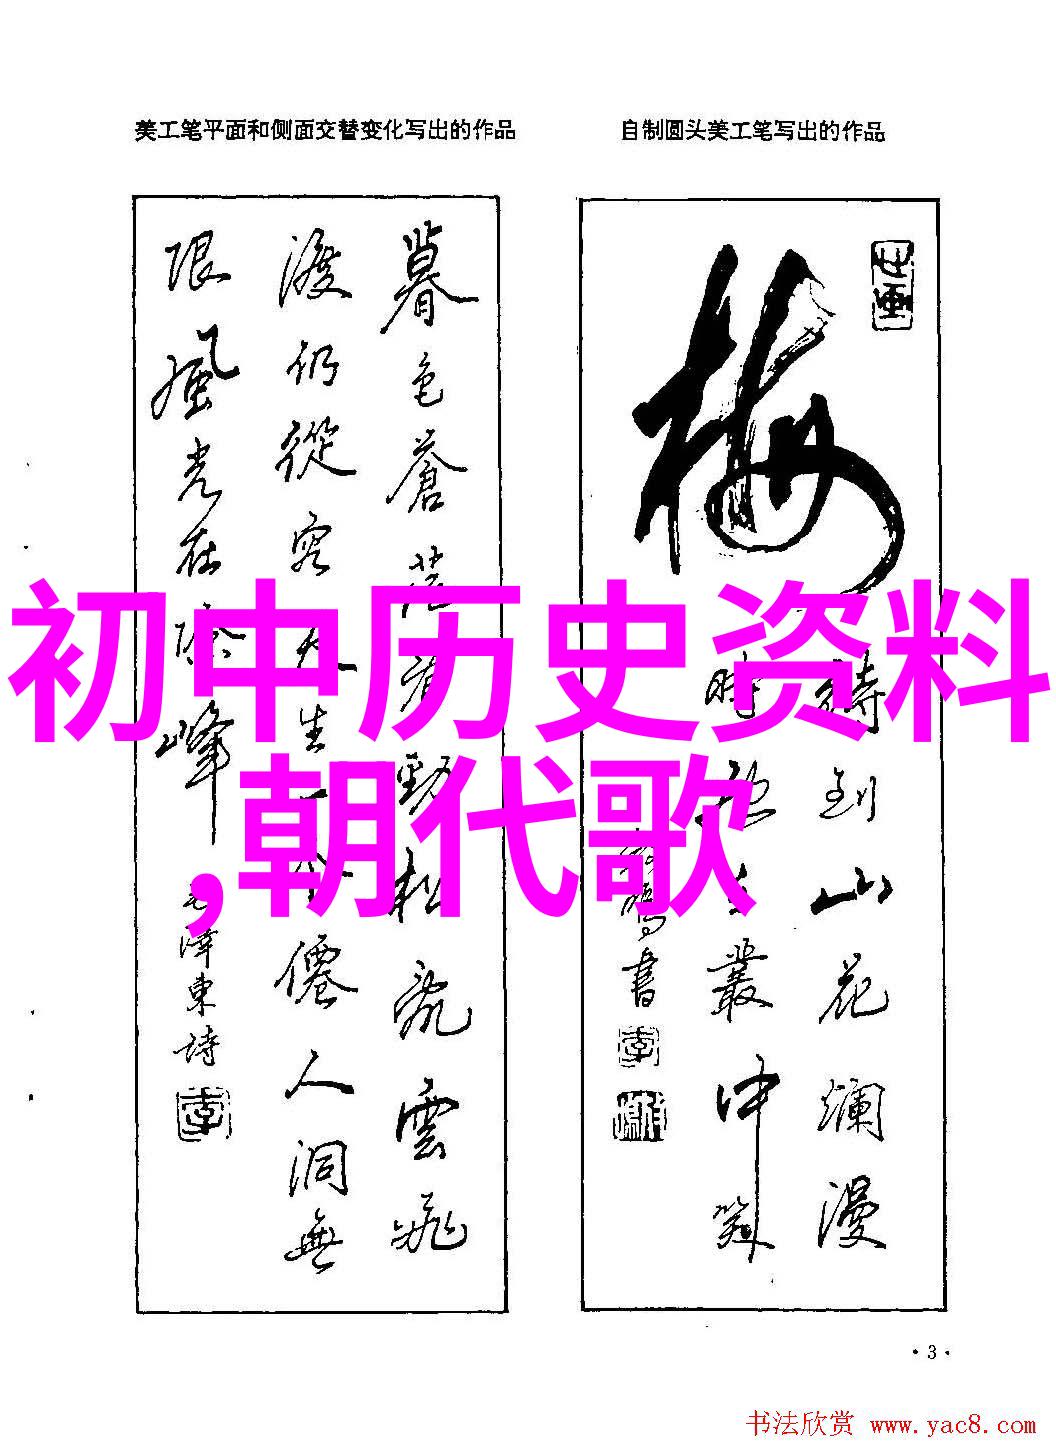 美工笔平面和侧面交替变化写出的作品
自制圆头美工笔写出的作品
暮色蒼茫看勁松乱雲飛
渡仍從容天生一个僊人洞無
限風光在险峰
毛澤東詩
梅
待到山花爛漫
時她在叢中笑
書
初中历史资料
,朝代歌
·3·
书法欣赏 www.yac8.com